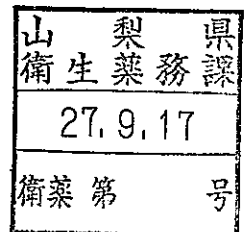 山梨県
衛生薬務課
27.9.17
衛薬第 号